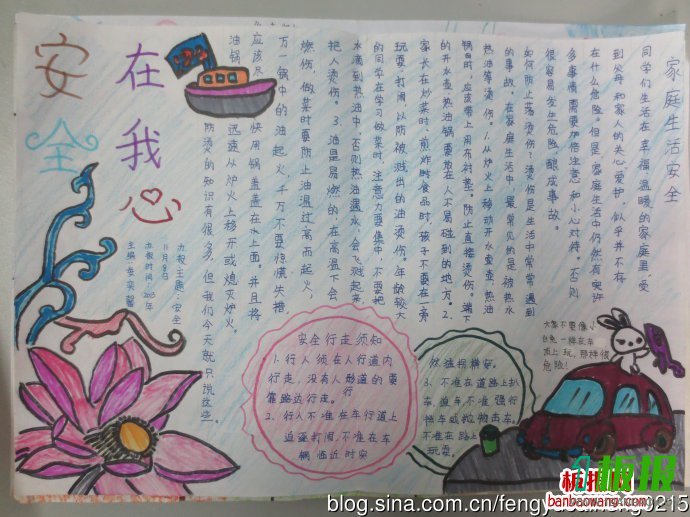 安全
在我心
家庭生活安全
同学们生活在幸福、温暖的家庭里,受
到父母和家人的关心、爱护,似乎并不存
在什么危险。但是,家庭生活中仍然有
多事情需要加倍注意和小心对待。否则
很容易发生危险酿成事故。
如何防止荡烫伤?烫伤是生活中常常遇到
的事故,在家庭生活中,最常见的是被热水
热油等烫伤。1.从炉火上移动开水壶、热油
锅时,应该带上用布衬垫。防止直接烫伤。端下
的开水壶、热油锅要放在人不易碰到的地方。2.
家长在炒菜时、煎炸时食品时,孩子不要在一旁
玩耍打闹,以防被溅出的油烫伤。年龄较大
的同学在学习做菜时,注意力要集中,不要把
水滴到热油中,否则热油遇水会飞溅起来
把人烫伤。3.油是易燃的,在高温下会
燃伤,做菜时要防止油温过高而起火,
万一锅中的油起火,千万不要惊慌失措,
应该尽快用锅盖盖在水上面。并且将
油锅迅速从炉火上移开或熄灭炉火。
防烫的知识有很多,但我们今天就只说这些。
办报主题:安全
11月8日
办报时间:2013年
主编:李奕馨
安全行走须知
1.行人须在人行道内
行走,没有人行道的要
靠路边行走。
2.行人不准在车行道上
追逐打闹,不准在车
辆临近时突
然猛拐横穿。
3.不准在道路上扒
车、追车、不准强行
拦车或抛物击车。
不准在路上
玩耍。
大家不要像小
白兔一样在车
顶上玩,那样很
危险!
板报
banbaowang.com
blog.sina.com.cn/fengy
0215